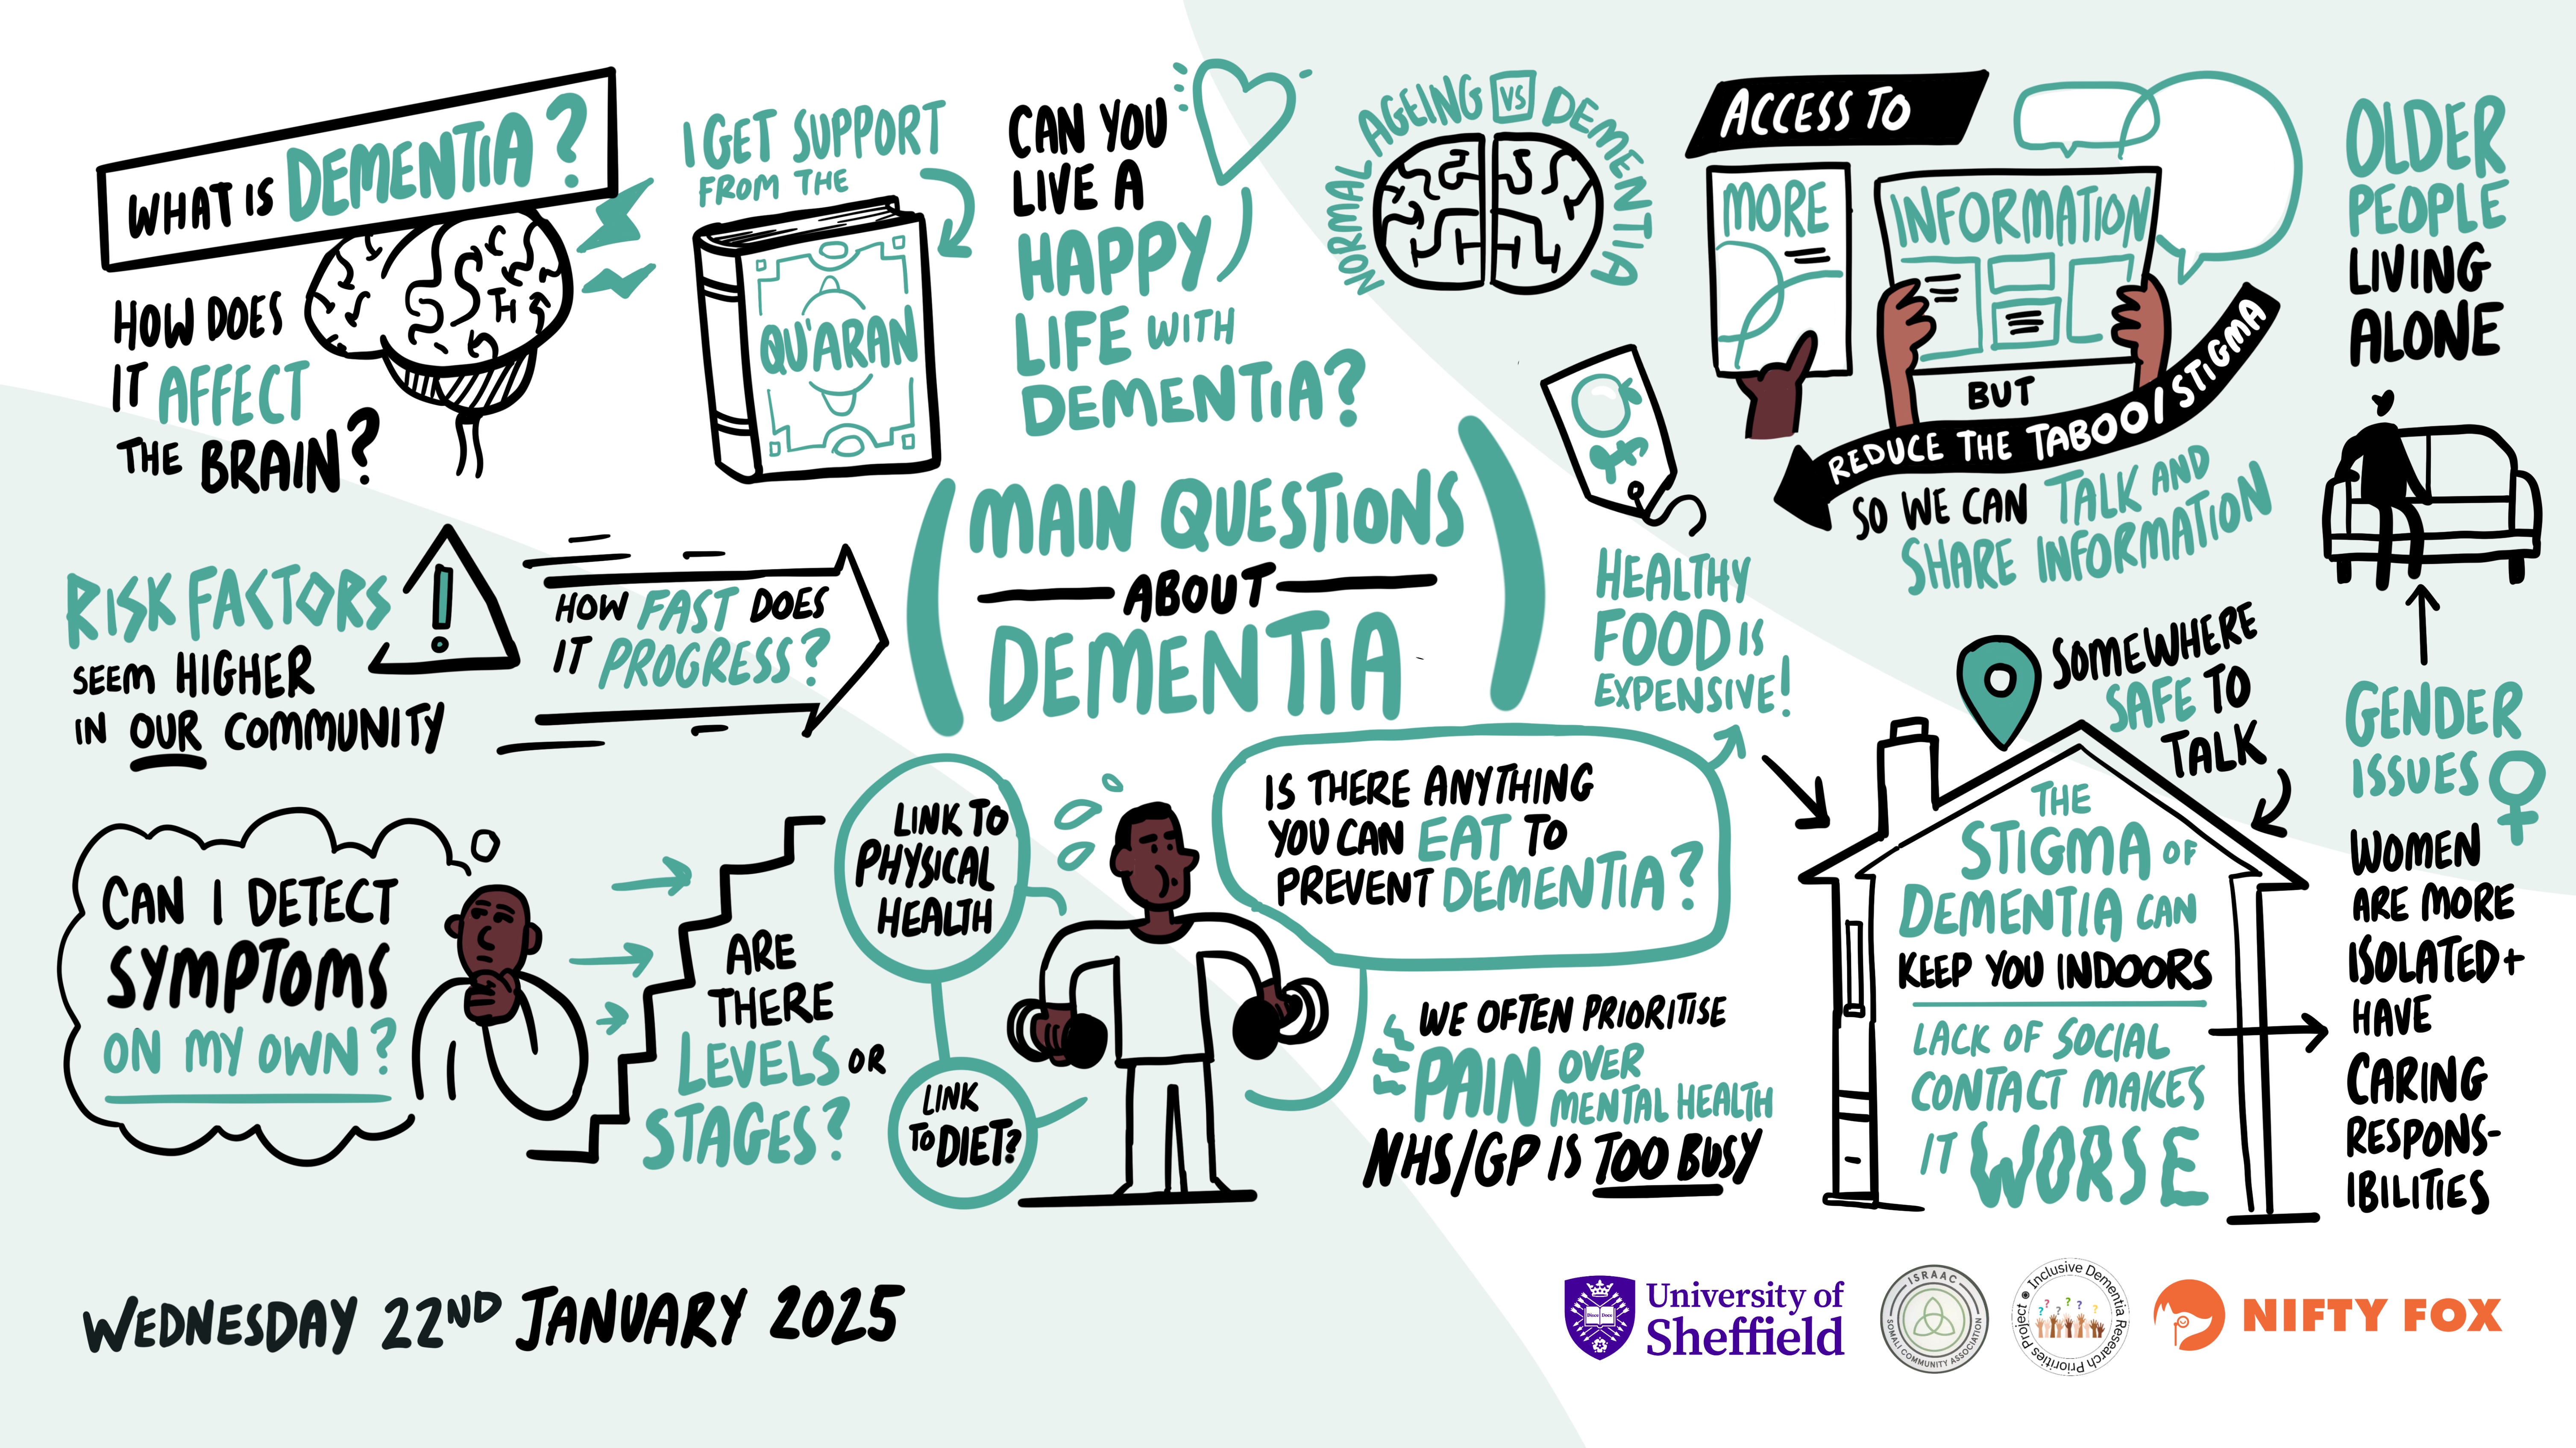 WHAT IS DEMENTIA?
HOW DOES
IT AFFECT
THE BRAIN?
I GET SUPPORT
FROM THE
QU'ARAN
CAN YOU
LIVE A
HAPPY
LIFE WITH
DEMENTIA?
NORMAL AGEING VS DEMENTIA
ACCESS TO
MORE
INFORMATION
BUT
REDUCE THE TABOO/STIGMA
SO WE CAN TALK AND
SHARE INFORMATION
OLDER
PEOPLE
LIVING
ALONE
RISK FACTORS
SEEM HIGHER
IN OUR COMMUNITY
!
HOW FAST DOES
IT PROGRESS?
MAIN QUESTIONS
ABOUT
DEMENTIA
£
HEALTHY
FOOD IS
EXPENSIVE!
SOMEWHERE
SAFE TO
TALK
GENDER
ISSUES
WOMEN
ARE MORE
ISOLATED+
HAVE
CARING
RESPONS-
IBILITIES
CAN I DETECT
SYMPTOMS
ON MY OWN?
ARE
THERE
LEVELS OR
STAGES?
LINK TO
PHYSICAL
HEALTH
LINK
TO DIET?
IS THERE ANYTHING
YOU CAN EAT TO
PREVENT DEMENTIA?
WE OFTEN PRIORITISE
PAIN OVER
MENTAL HEALTH
NHS/GP IS TOO BUSY
THE
STIGMA OF
DEMENTIA CAN
KEEP YOU INDOORS
LACK OF SOCIAL
CONTACT MAKES
IT WORSE
WEDNESDAY 22ND JANUARY 2025
University of
Sheffield
ISRAAC
SOMALI COMMUNITY ASSOCIATION
Inclusive Dementia Research Priorities Project
NIFTY FOX